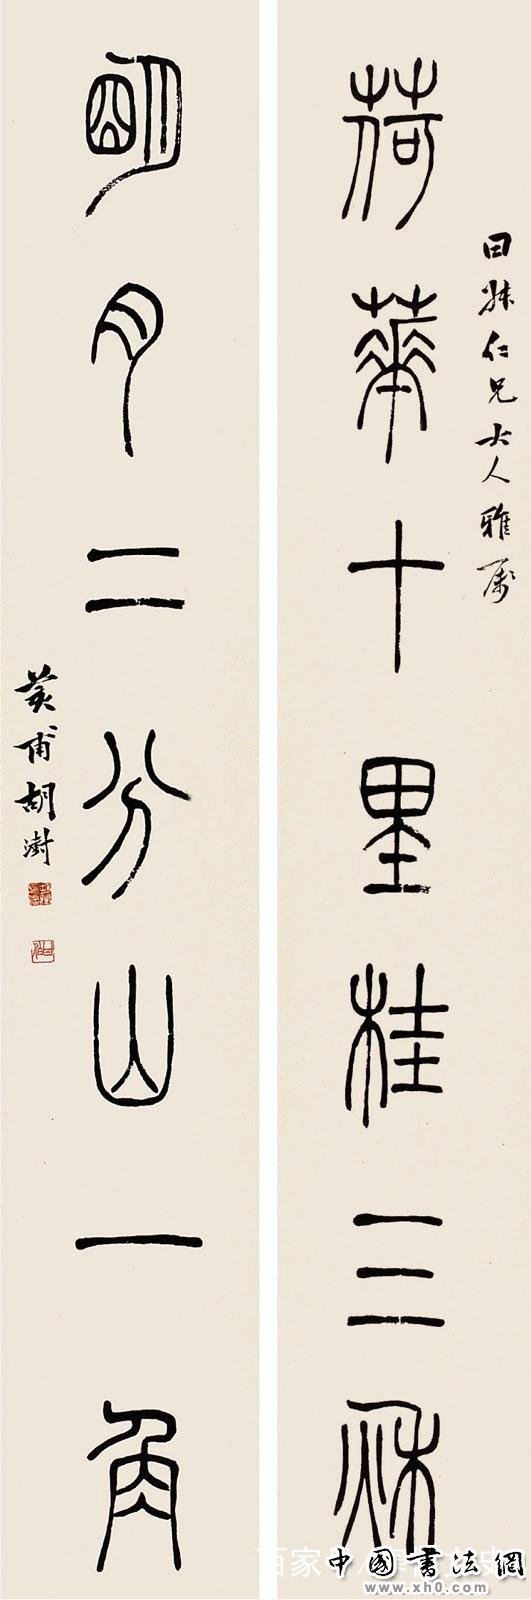 仁兄大人雅屬
荷華十里桂三秋
明月二分山一角
荄甫胡澍
中國書法網
www.xh0.com